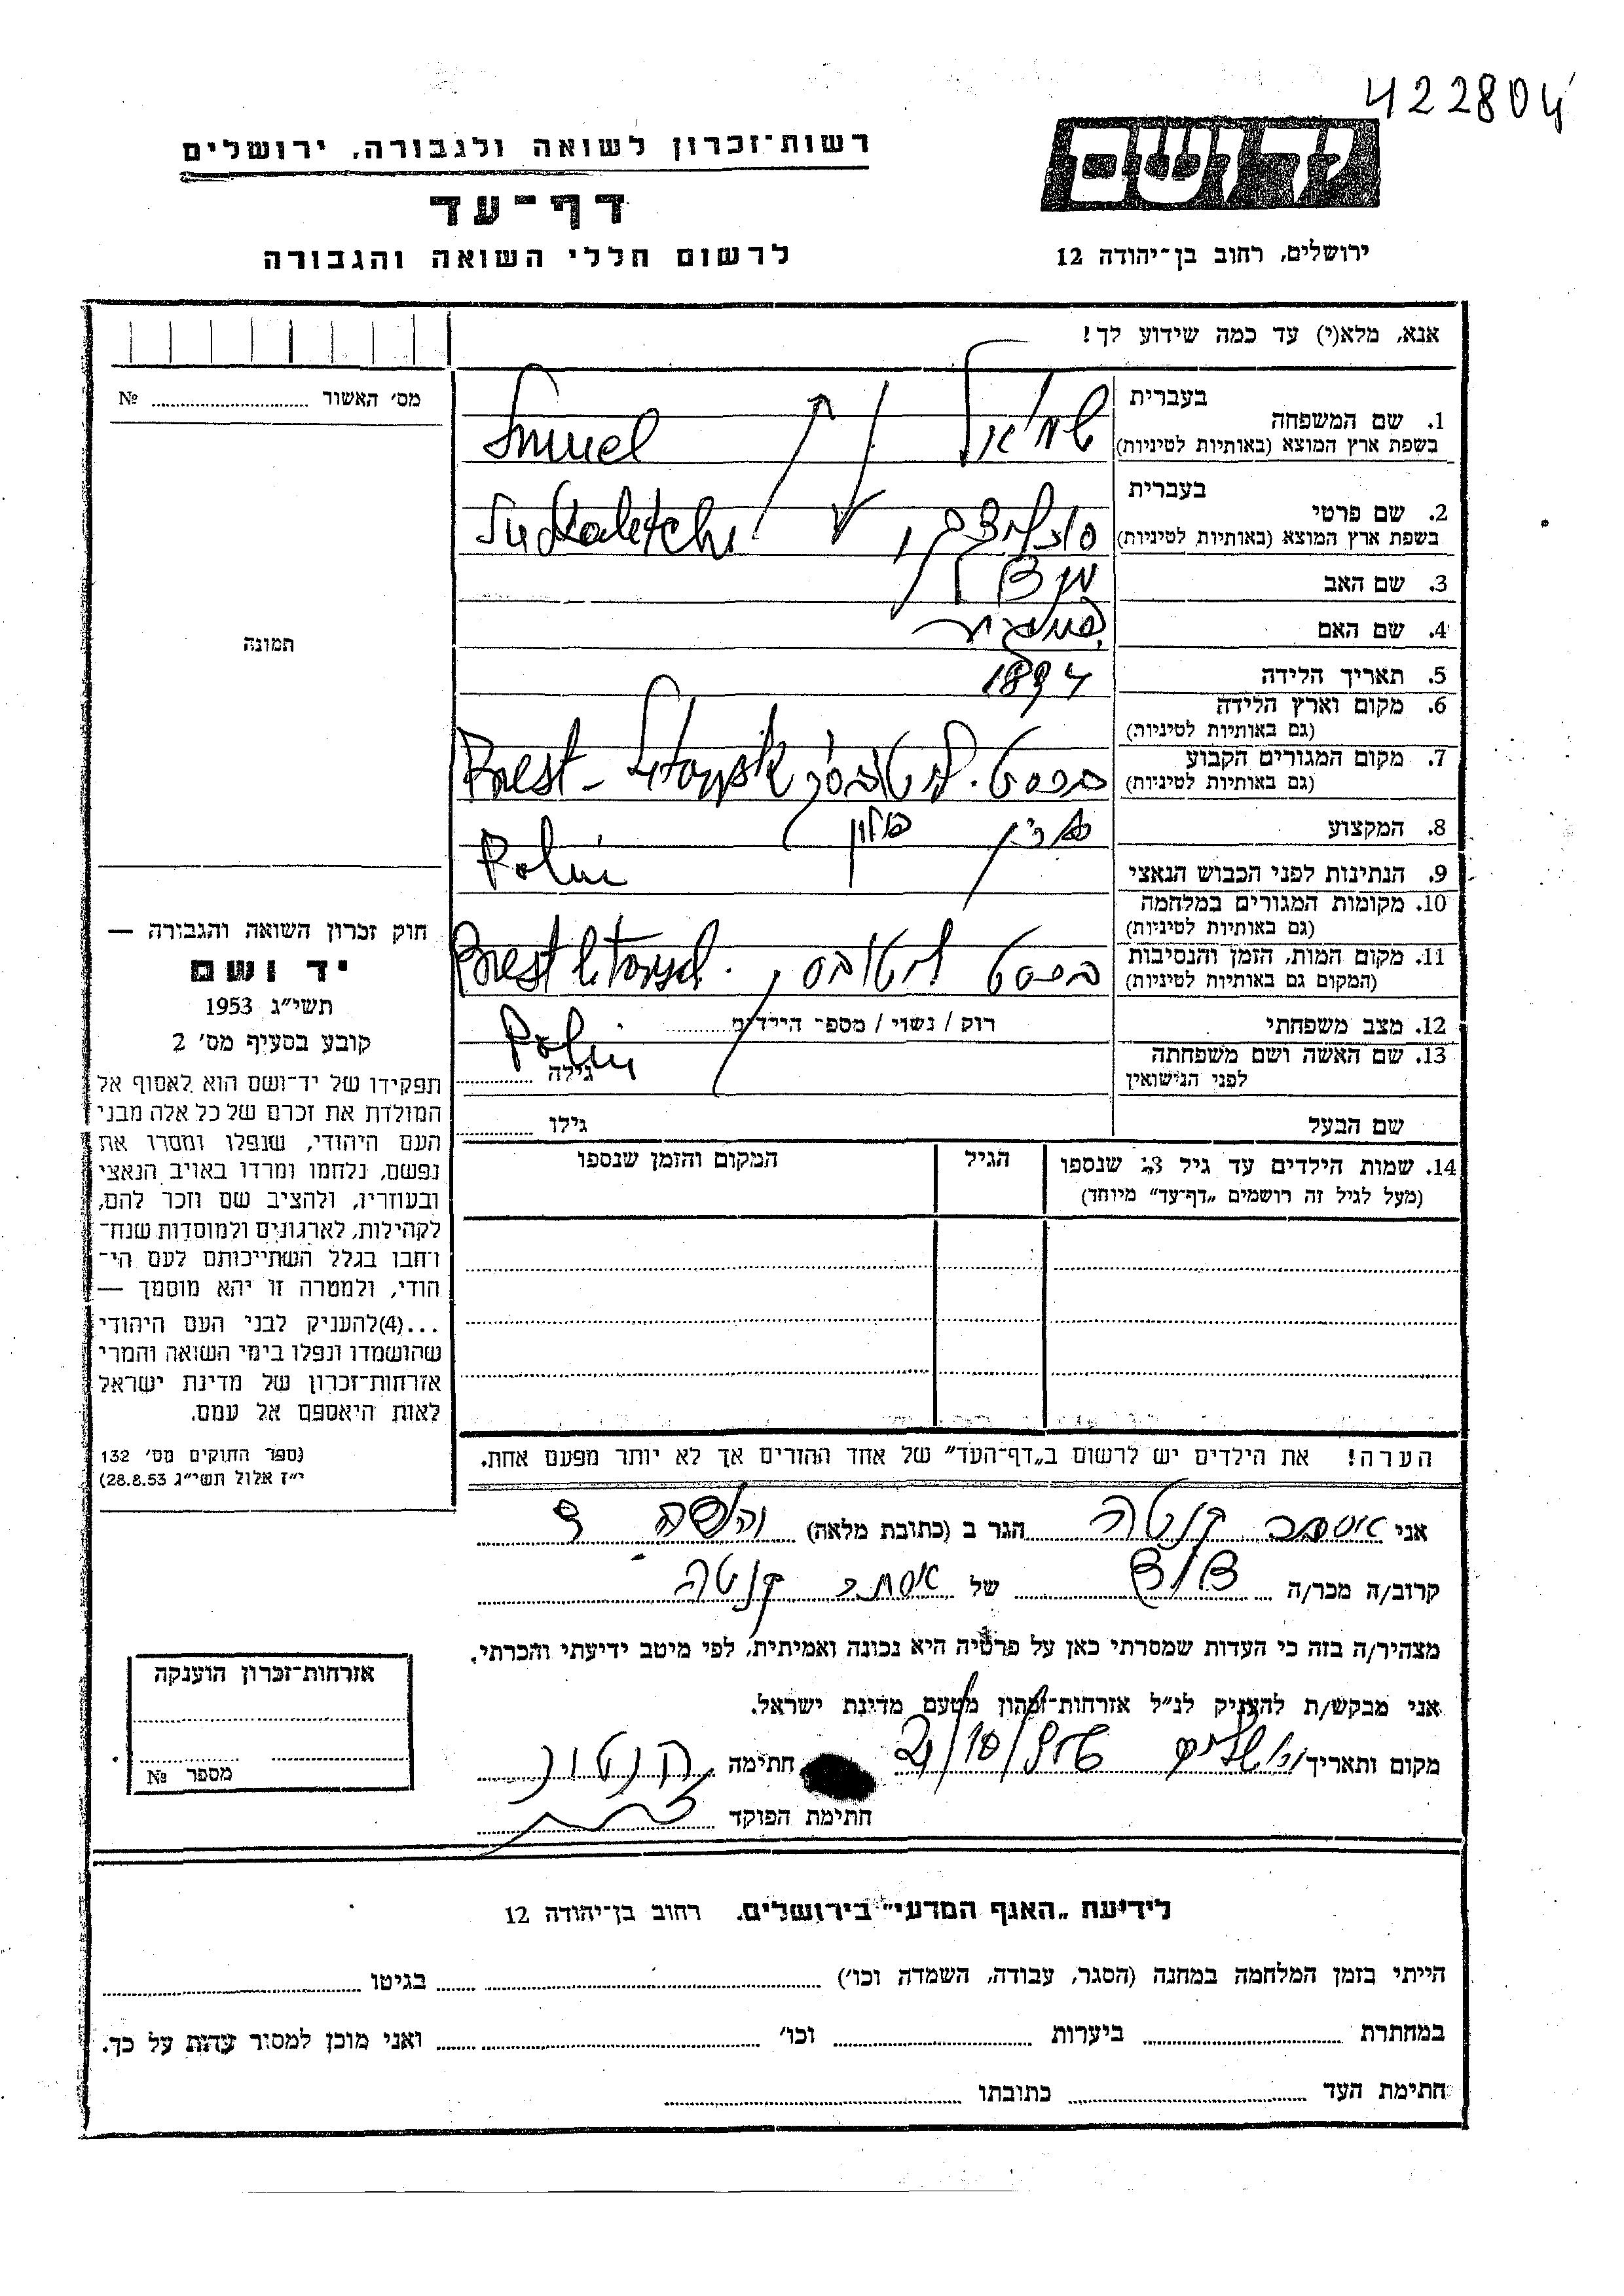 422804
רשות־זכרון לשואה ולגבורה, ירושלים
ידושם
דף־עד
ירושלים, רחוב בן־יהודה 12
לרשום חללי השואה והגבורה
אנא, מלא(י) עד כמה שידוע לך!
מס׳ האשור № 
1. שם המשפחה
בעברית
שמואל
בשפת ארץ המוצא (באותיות לטיניות)
Smuel
2. שם פרטי
בעברית
בשפת ארץ המוצא (באותיות לטיניות)
3. שם האב
4. שם האם
5. תאריך הלידה
1894
6. מקום וארץ הלידה
(גם באותיות לטיניות)
7. מקום המגורים הקבוע
(גם באותיות לטיניות)
Brest-Litovsk
8. המקצוע
פולין
9. הנתינות לפני הכבוש הנאצי
Polin
10. מקומות המגורים במלחמה
(גם באותיות לטיניות)
11. מקום המות, הזמן והנסיבות
(המקום גם באותיות לטיניות)
Brest litovsk
12. מצב משפחתי
רוק / נשוי / מספר הילדים
Polin
13. שם האשה ושם משפחתה
לפני הנישואין
גילה
שם הבעל
גילו
14. שמות הילדים עד גיל 18 שנספו
(מעל לגיל זה רושמים „דף־עד” מיוחד)
הגיל
המקום והזמן שנספו
תמונה
חוק זכרון השואה והגבורה —
יד ושם
תשי״ג 1953
קובע בסעיף מס׳ 2
תפקידו של יד־ושם הוא לאסוף אל
המולדת את זכרם של כל אלה מבני
העם היהודי, שנפלו ומסרו את
נפשם, נלחמו ומרדו באויב הנאצי
ובעוזריו, ולהציב שם וזכר להם,
לקהילות, לארגונים ולמוסדות שנח־
רחבו בגלל השתייכותם לעם הי־
הודי, ולמטרה זו יהא מוסמך —
...(4)להעניק לבני העם היהודי
שהושמדו ונפלו בימי השואה והמרי
אזרחות־זכרון של מדינת ישראל
לאות היאספם אל עמם.
(ספר החוקים מס׳ 132
י״ז אלול תשי״ג 28.8.53)
הערה! את הילדים יש לרשום ב„דף־העד” של אחד ההורים אך לא יותר מפעם אחת.
אני אסתר קנטה הגר ב (כתובת מלאה)
קרוב/ה מכר/ה של אסתר קנטה
מצהיר/ה בזה כי העדות שמסרתי כאן על פרטיה היא נכונה ואמיתית, לפי מיטב ידיעתי והכרתי.
אני מבקש/ת להעניק לנ״ל אזרחות־זכרון מטעם מדינת ישראל.
מקום ותאריך ירושלים חתימה
חתימת הפוקד
אזרחות־זכרון הוענקה
מספר №
לידיעת „האגף המדעי” בירושלים. רחוב בן־יהודה 12
הייתי בזמן המלחמה במחנה (הסגר, עבודה, השמדה וכו׳) בגיטו
במחתרת ביערות וכו׳ ואני מוכן למסור עדות על כך.
חתימת העד כתובתו